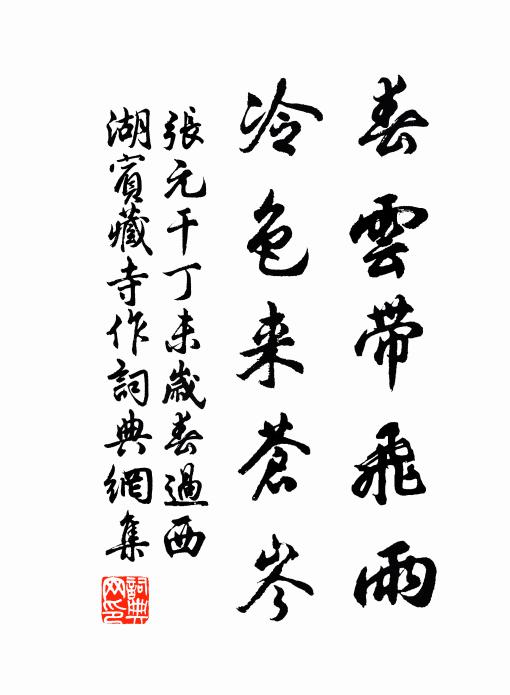 春雲帶飛雨
冷色来蒼岑
張元干丁未歲春過西
湖賓藏寺作詞典網集
詞典網印